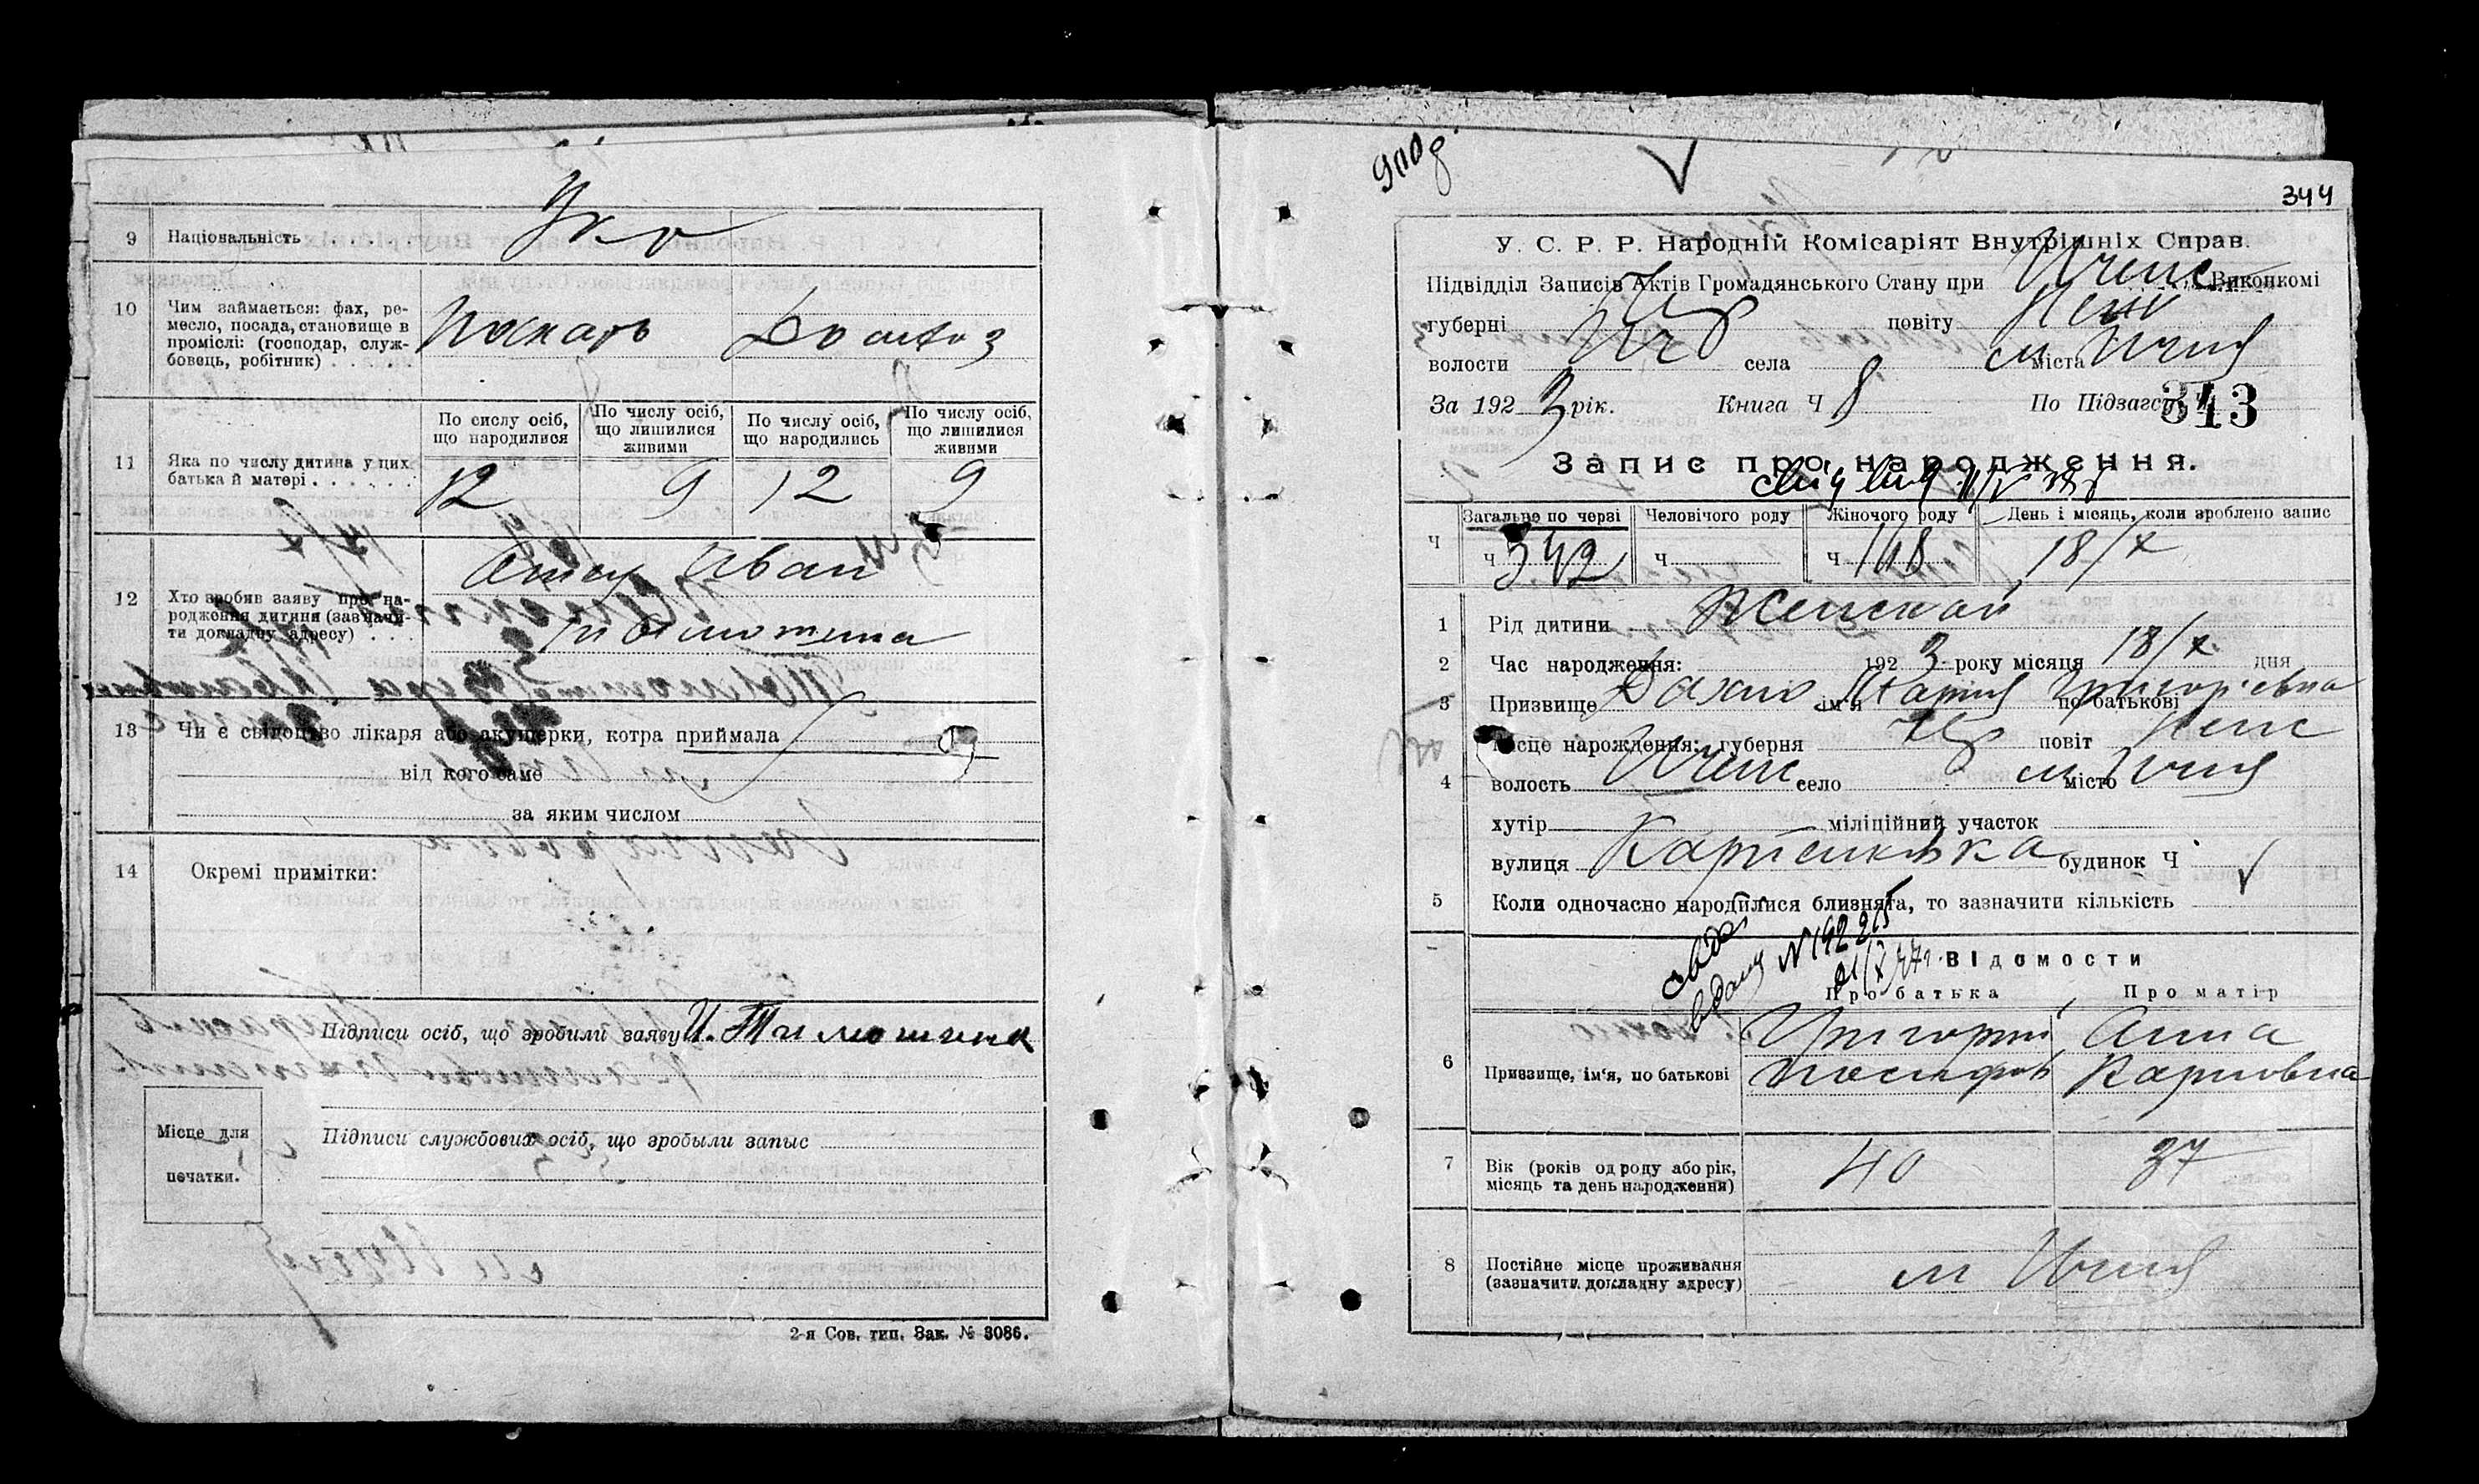 9 Національність Укр
10 Чим займається: фах, ре-
месло, посада, становище в
проміслі: (господар, служ-
бовець, робітник) . . . . .
Пекарь Домхоз
11 Яка по числу дитина у цих
батька й матері . . . . . . .
По сислу осіб,
що народилися
По числу осіб,
що лишилися
живими
По числу осіб,
що народились
По числу осіб,
що лишилися
живими
12 9 12 9
12 Хто зробив заяву про на-
родження дитини (зазначи-
ти докладну адресу) . . .
Отец Иван
Тимошенка
13 Чи є свідоцтво лікаря або акушерки, котра приймала
від кого саме
за яким числом
14 Окремі примітки:
Підписи осіб, що зробили заяву И. Тимошенка
Підписи службових осіб, що зробыли запыс
Місце для
печатки.
2-я Сов. тип. Зак. № 3086.
344
У. С. Р. Р. Народній Комісаріят Внутрішніх Справ.
Підвідділ Записів Актів Громадянського Стану при Иченс. Виконкомі
губерні Чер повіту Неж
волости Ич села міста м Ичня
За 1923 рік. Книга Ч 8 По Підзагсу 343
Запис про народження.
Ч Загальне по черзі Человічого роду Жіночого роду День і місяць, коли зроблено запис
Ч 342 Ч Ч 168 18/X
1 Рід дитини Женская
2 Час народження: 1923 року місяця 18/X. дня
3 Призвище ім'я по батькові Григорієвна
4 Місце нарождення: губерня Чер повіт Неж
волость Ичен село місто м Ичня
хутір міліційний участок
вулиця будинок Ч
5 Коли одночасно народилися близнята, то зазначити кількість
свід.
видано N 192215
Відомости
Про батька Про матір
6 Призвище, ім'я, по батькові
Григорий Анна
Иосифов Карповна
7 Вік (років од роду або рік,
місяць та день народження)
40 37
8 Постійне місце проживання
(зазначити докладну адресу)
м Ичня